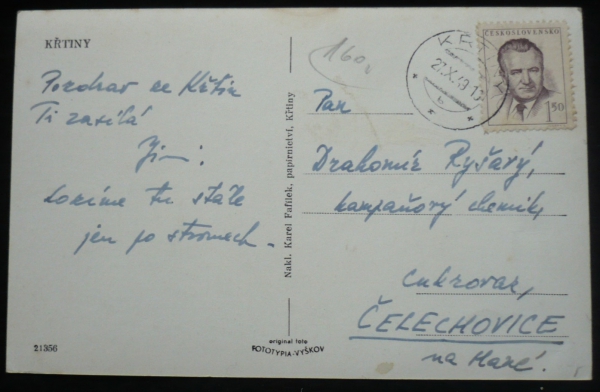 KŘTINY
Pozdrav ze Křtin
Ti zasílá
Jiří.
Lozíme tu stále
jen po stromech.
21356
Nakl. Karel Fafílek, papírnictví, Křtiny
original foto
FOTOTYPIA-VYŠKOV
160,
ČESKOSLOVENSKO
1.50
Pan
Drahomír Ryšavý,
kampaňový chemik,
Cukrovar,
ČELECHOVICE
na Hané.